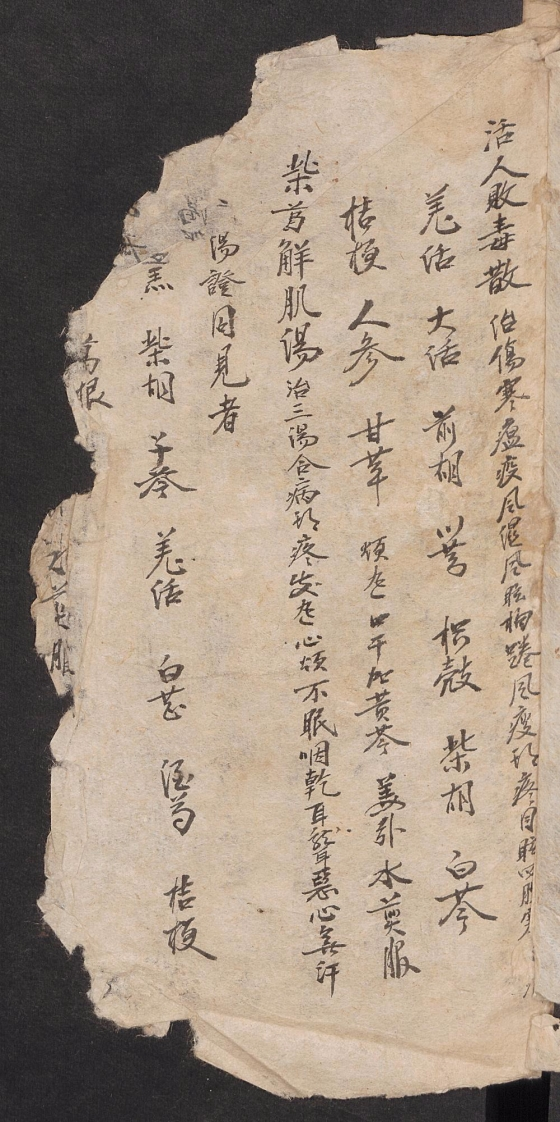 活人敗毒散 治傷寒瘟疫風濕風眩拘踡風痰頭疼目眩四肢
羌活 大活 前胡 川芎 枳殼 柴胡 白苓
桔梗 人參 甘草 煩志口干加黄芩 姜引水煎服
柴葛觧肌湯 治三湯合病頭疼發志心煩不眠咽乾耳聾惡心無汗
湯證同見者
羔 柴胡 子苓 羌活 白芷 酒芍 桔梗
葛根
水煎服